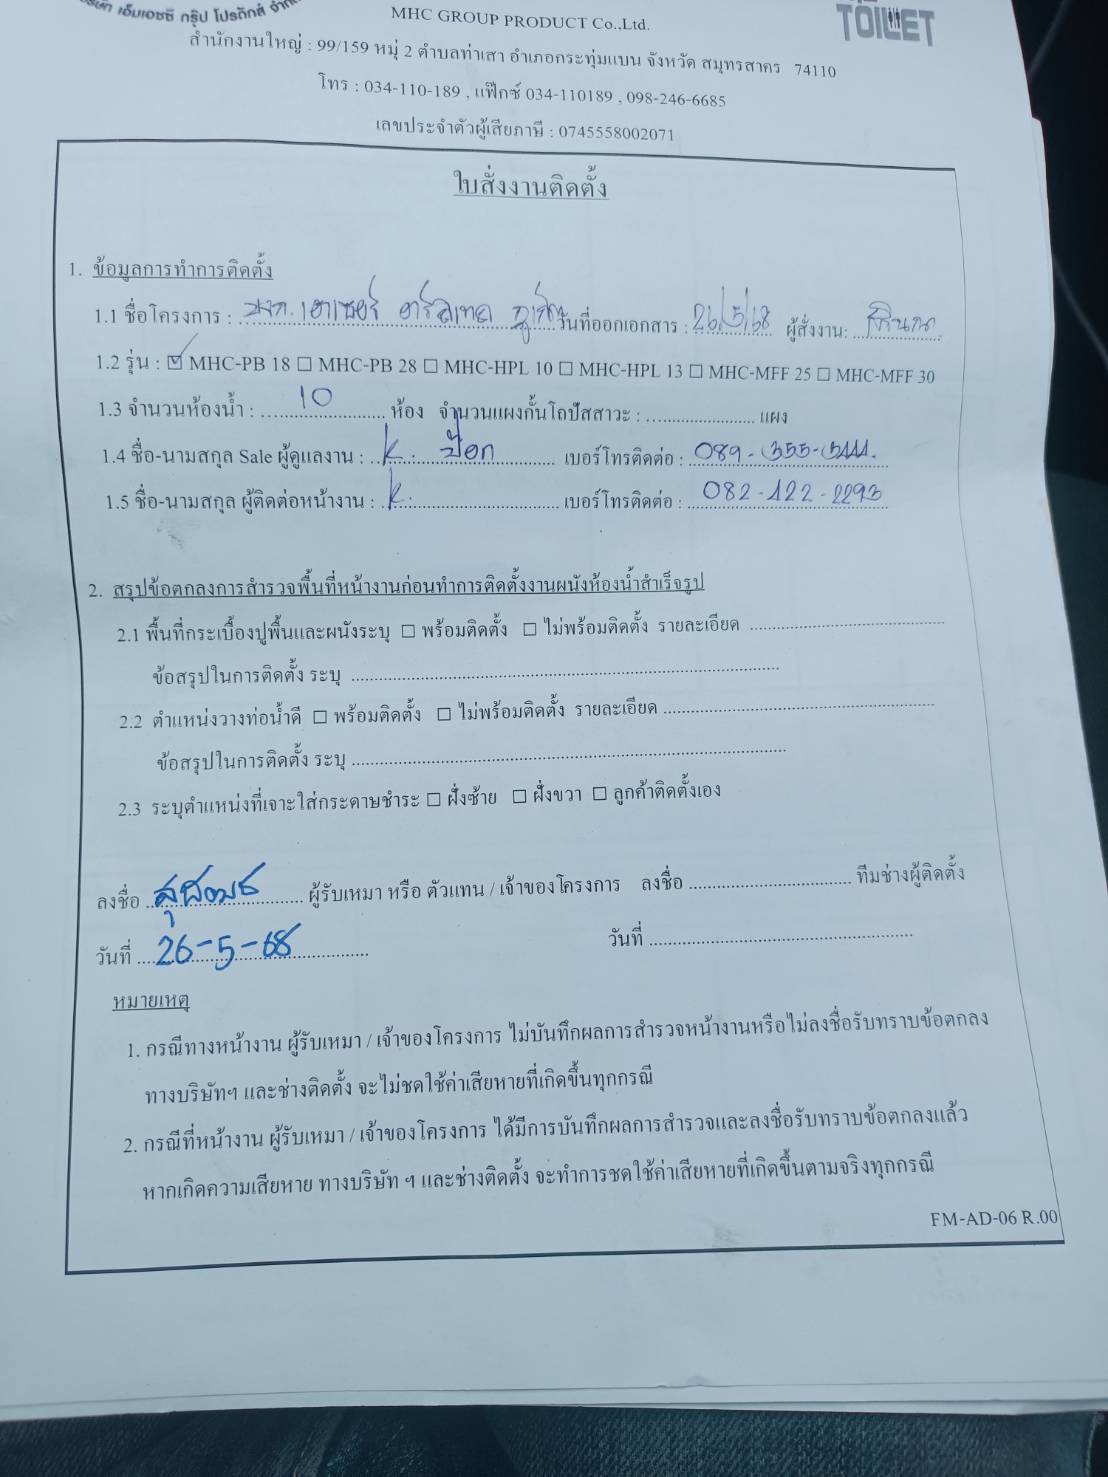 เอ็มเอชซี กรุ๊ป โปรดักส์
MHC GROUP PRODUCT Co.,Ltd.
TOILET
สำนักงานใหญ่ : 99/159 หมู่ 2 ตำบลท่าเสา อำเภอกระทุ่มแบน จังหวัด สมุทรสาคร 74110
โทร : 034-110-189 , แฟ๊กซ์ 034-110189 , 098-246-6685
เลขประจำตัวผู้เสียภาษี : 0745558002071
ใบสั่งงานติดตั้ง
1. ข้อมูลการทำการติดตั้ง
1.1 ชื่อโครงการ : วันที่ออกเอกสาร : 26/5/68 ผู้สั่งงาน:
1.2 รุ่น : ☑ MHC-PB 18 ☐ MHC-PB 28 ☐ MHC-HPL 10 ☐ MHC-HPL 13 ☐ MHC-MFF 25 ☐ MHC-MFF 30
1.3 จำนวนห้องน้ำ : 10 ห้อง จำนวนแผงกั้นโถปัสสาวะ : แผง
1.4 ชื่อ-นามสกุล Sale ผู้ดูแลงาน : k. ป๊อก เบอร์โทรติดต่อ :
1.5 ชื่อ-นามสกุล ผู้ติดต่อหน้างาน : k. เบอร์โทรติดต่อ : 082-122-2293
2. สรุปข้อตกลงการสำรวจพื้นที่หน้างานก่อนทำการติดตั้งงานผนังห้องน้ำสำเร็จรูป
2.1 พื้นที่กระเบื้องปูพื้นและผนังระบุ ☐ พร้อมติดตั้ง ☐ ไม่พร้อมติดตั้ง รายละเอียด
ข้อสรุปในการติดตั้ง ระบุ
2.2 ตำแหน่งวางท่อน้ำดี ☐ พร้อมติดตั้ง ☐ ไม่พร้อมติดตั้ง รายละเอียด
ข้อสรุปในการติดตั้ง ระบุ
2.3 ระบุตำแหน่งที่เจาะใส่กระดาษชำระ ☐ ฝั่งซ้าย ☐ ฝั่งขวา ☐ ลูกค้าติดตั้งเอง
ลงชื่อ ผู้รับเหมา หรือ ตัวแทน / เจ้าของโครงการ ลงชื่อ ทีมช่างผู้ติดตั้ง
วันที่ 26-5-68 วันที่
หมายเหตุ
1. กรณีทางหน้างาน ผู้รับเหมา / เจ้าของโครงการ ไม่บันทึกผลการสำรวจหน้างานหรือไม่ลงชื่อรับทราบข้อตกลง
ทางบริษัทฯ และช่างติดตั้ง จะไม่ชดใช้ค่าเสียหายที่เกิดขึ้นทุกกรณี
2. กรณีที่หน้างาน ผู้รับเหมา / เจ้าของโครงการ ได้มีการบันทึกผลการสำรวจและลงชื่อรับทราบข้อตกลงแล้ว
หากเกิดความเสียหาย ทางบริษัท ฯ และช่างติดตั้ง จะทำการชดใช้ค่าเสียหายที่เกิดขึ้นตามจริงทุกกรณี
FM-AD-06 R.00